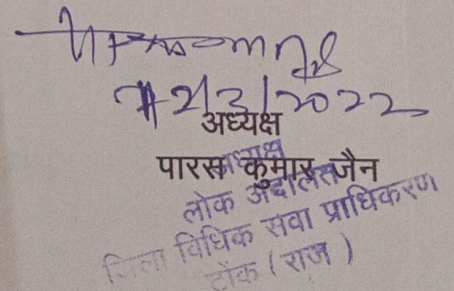 12/3/2022
अध्यक्ष
पारस कुमार जैन
अध्यक्ष
लोक अदालत
जिला विधिक सेवा प्राधिकरण
टोंक (राज)